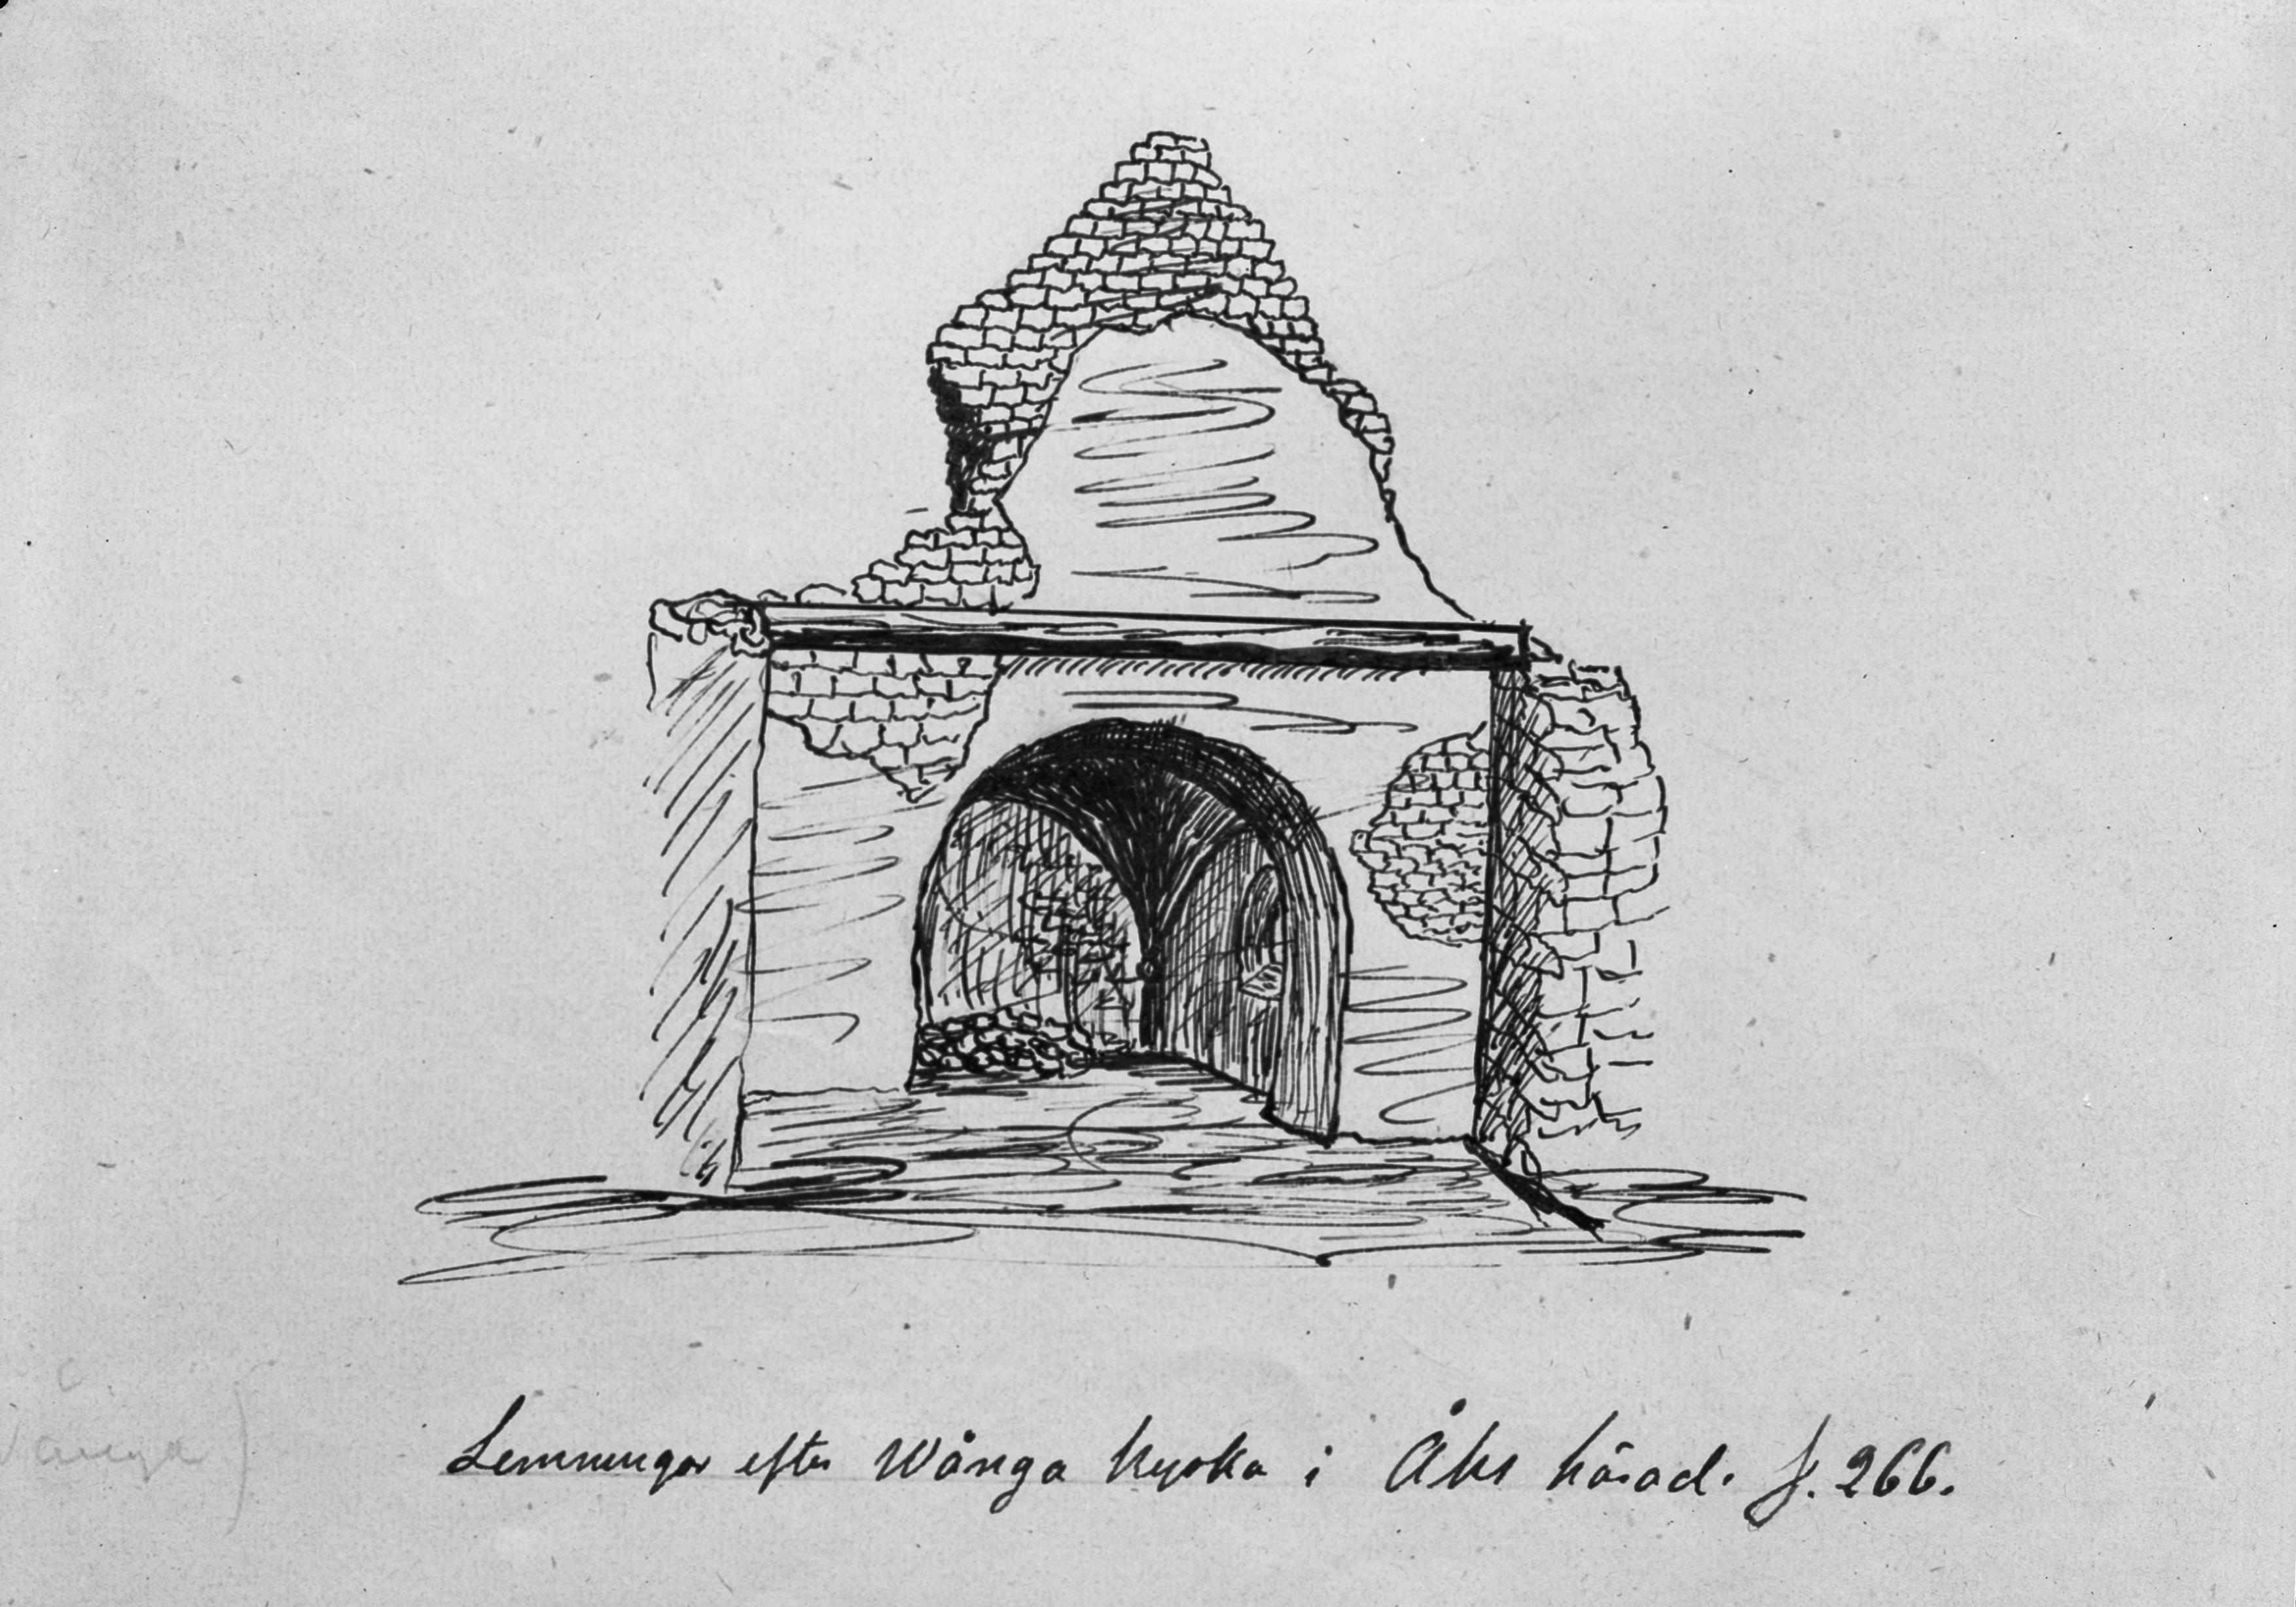 Lemningar efter Wånga kyrka i Åke härad. f. 266.
Vånga)